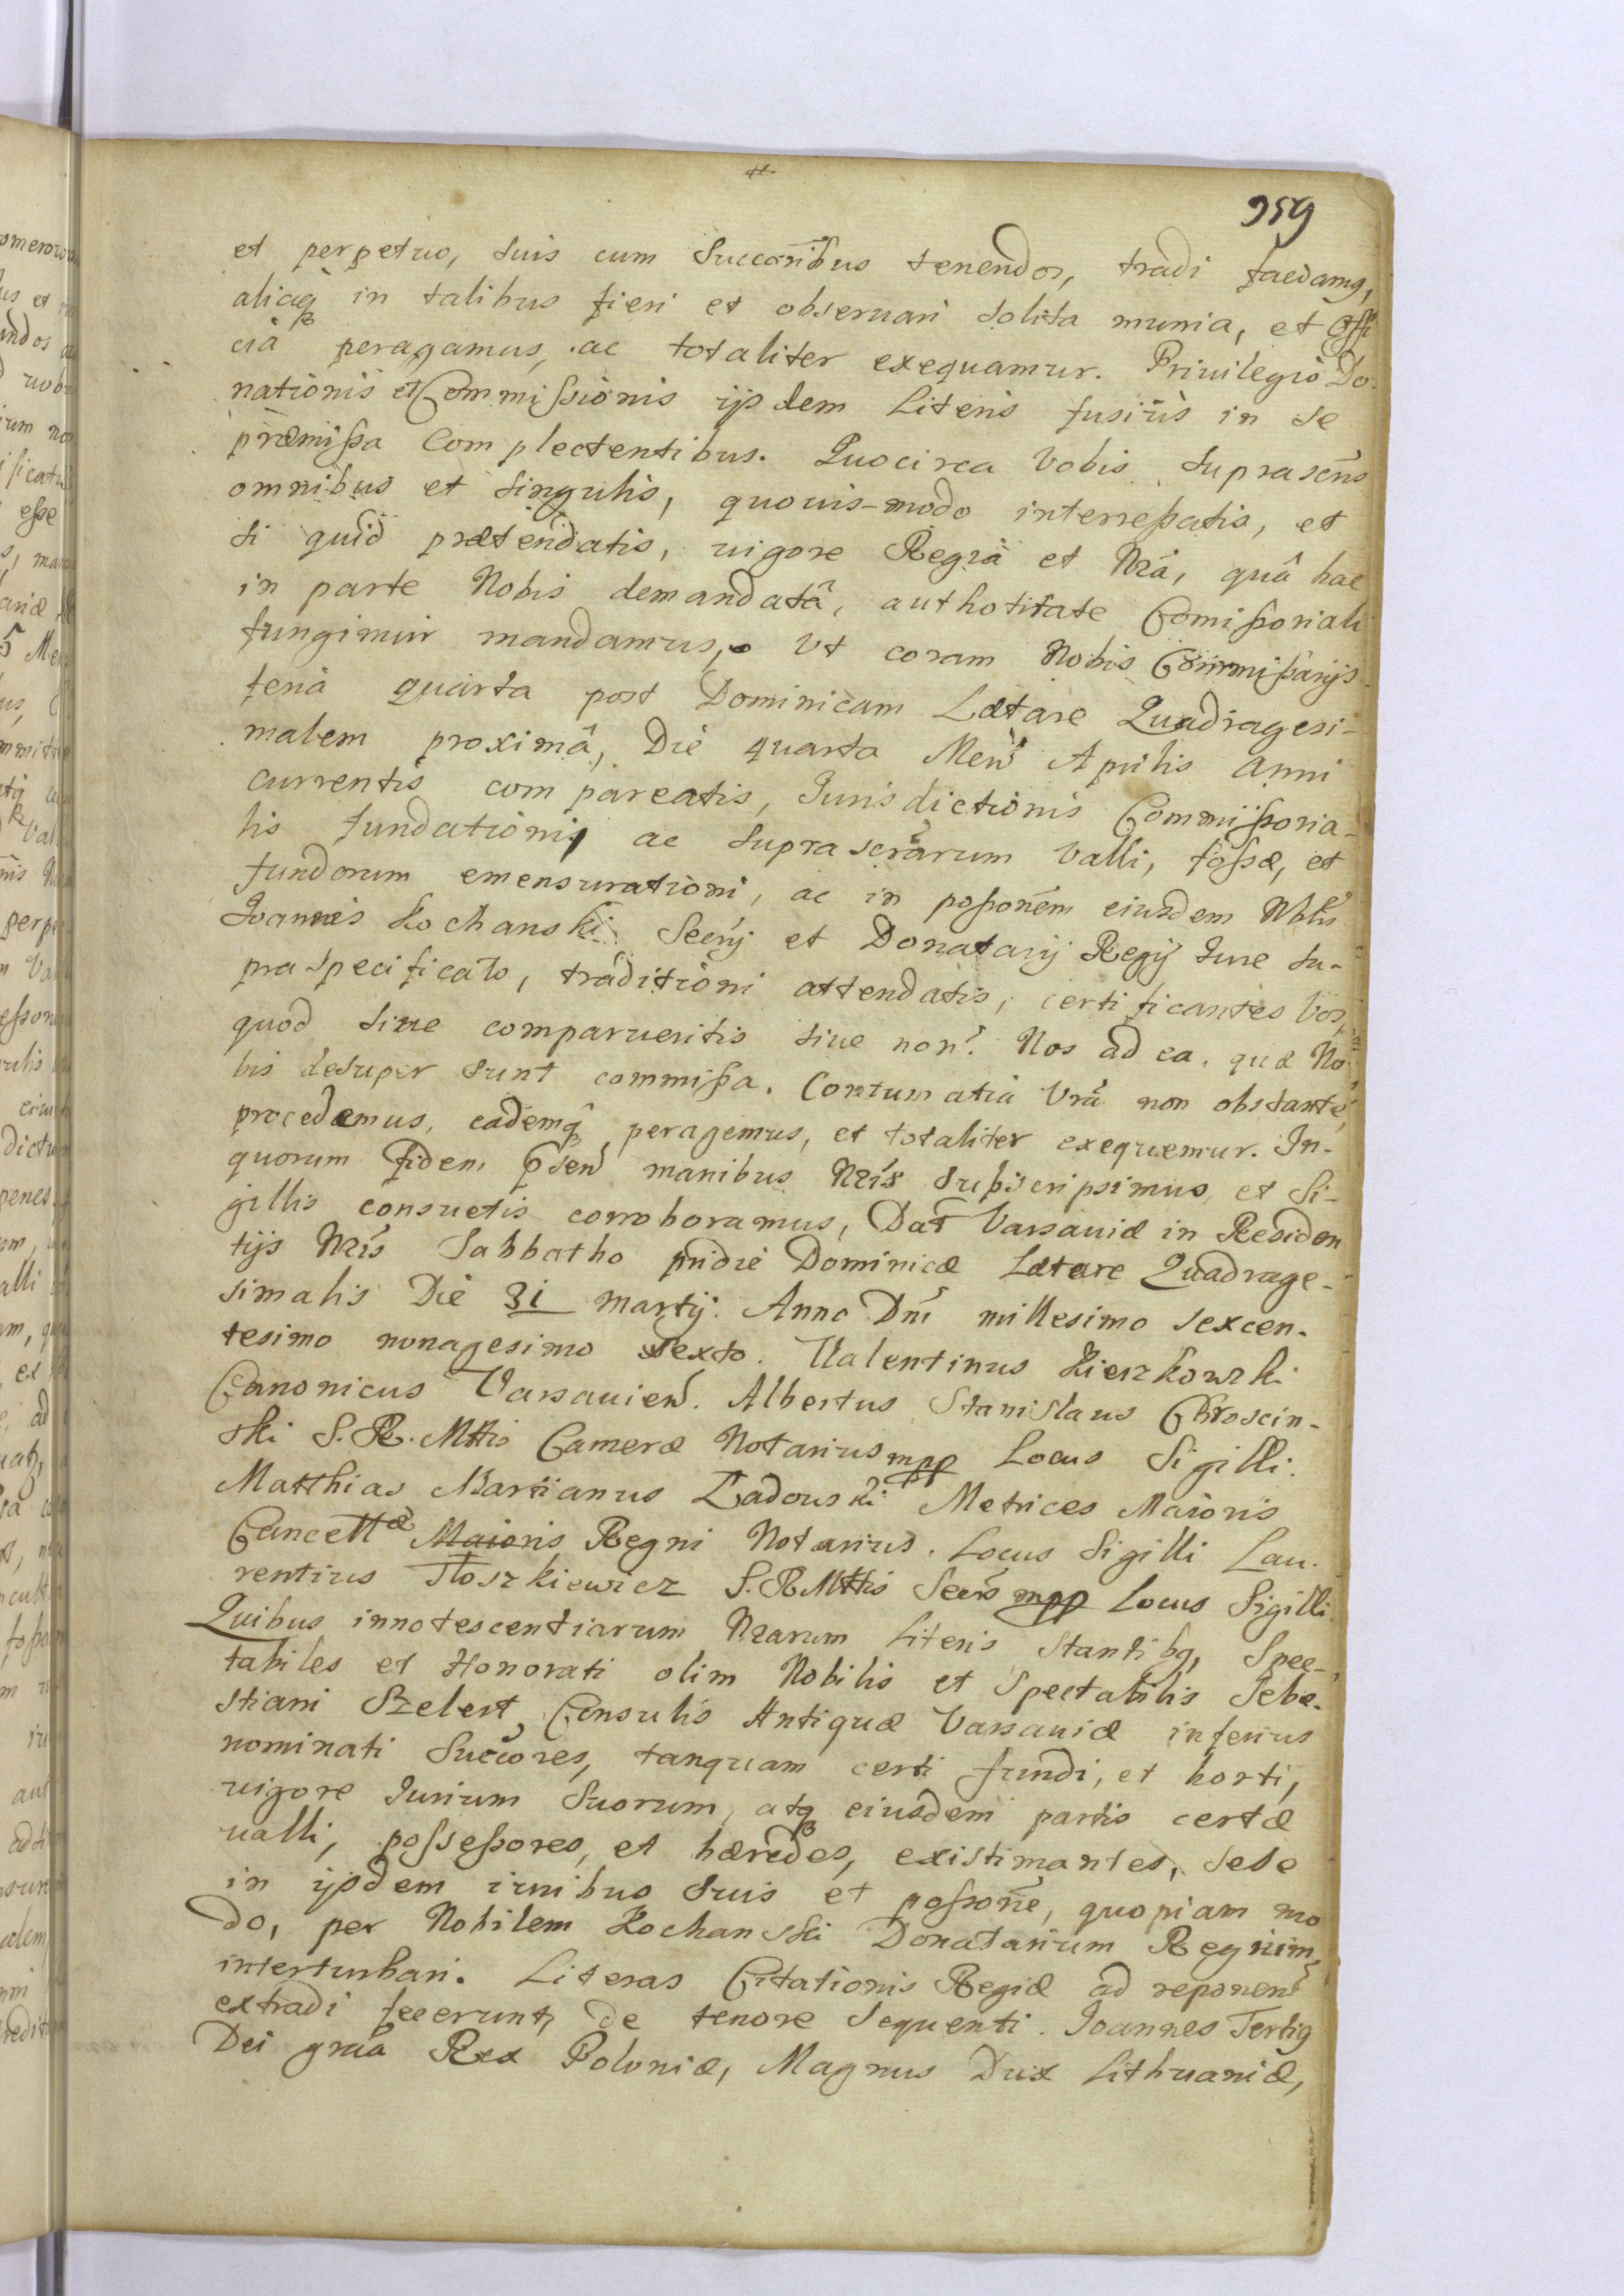 959
et perpetuo, suis cum Succoribus tenendos, tradi faciamq,
aliaq in talibus fieri et obseruari solita munia, et Offi
cia peragamus, ac totaliter exequamur. Priuilegio Do
nationis et Commissionis ijsdem Literis fusius in se
præmissa Complectentibus. Quocirca Vobis suprascris
omnibus et singulis, quouis-modo interressatis, et
si quid prætendatis, uigore Regia et Nrâ, quâ hac
in parte Nobis demandatâ, authotitate Comissoriali
fungimur mandamus, Vt coram Nobis Commissarijs
feria quarta post Dominicam Lætare Quadragesi-
malem proximâ, Die quarta Mens Aprilis Anni
currentis compareatis, Jurisdictionis Commissoria-
lis fundationi ac suprascrarum Valli, fossæ, et
fundorum emensurationi, ac in possonem eiusdem Nblis
Joannis Kochanski Secrij et Donatarij Regij Iure su-
praspecificato, traditioni attendatis, certificantes Vos,
quod siue comparueritis siue non. Nos ad ea, quæ No
bis desuper sunt commissa. Contumatia Vrâ non obstante,
procedemus, eademq peragemus, et totaliter exequemur. In-
quorum fidem psen manibus Nris subscripsimus, et Si-
gillis consuetis corroboramus, Dat Varsauiæ in Residen
tijs Nris Sabbatho pridie Dominicæ Lætare Quadrage-
simalis Die 31 Martij. Anno Dni millesimo sexcen-
tesimo nonagesimo sexto. Valentinus Kierzkowski
Canonicus Varsauien. Albertus Stanislaus Chroscin-
ski S. R. Mttis Cameræ Notarius mpp Locus Sigilli.
Matthias Martianus Ładowski Metrices Maioris
Cancellæ Maioris Regni Notarius. Locus Sigilli Lau-
rentius Floszkiewicz S. R Mttis Secris mpp Locus Sigilli.
Quibus innotescentiarum Nrarum Literis Stantibq, Spec-
tabiles et Honorati olim Nobilis et Spectabilis Seba-
stiani Szelert, Consulis Antiquæ Varsauiæ inferius
nominati Succores, tanquam certi fundi, et horti,
uigore Iurium Suorum, atq eiusdem partis certæ
ualli, possessores, et hæredes, existimantes, sese
in ijsdem iuribus suis et possone, quopiam mo
do, per Nobilem Kochanski Donatarium Regium,
interturbari. Literas Citationis Regiæ ad reponen
extradi fecerunt, de tenore sequenti. Joannes Tertiq
Dei grâa Rex Poloniæ, Magnus Dux Lithuaniæ,